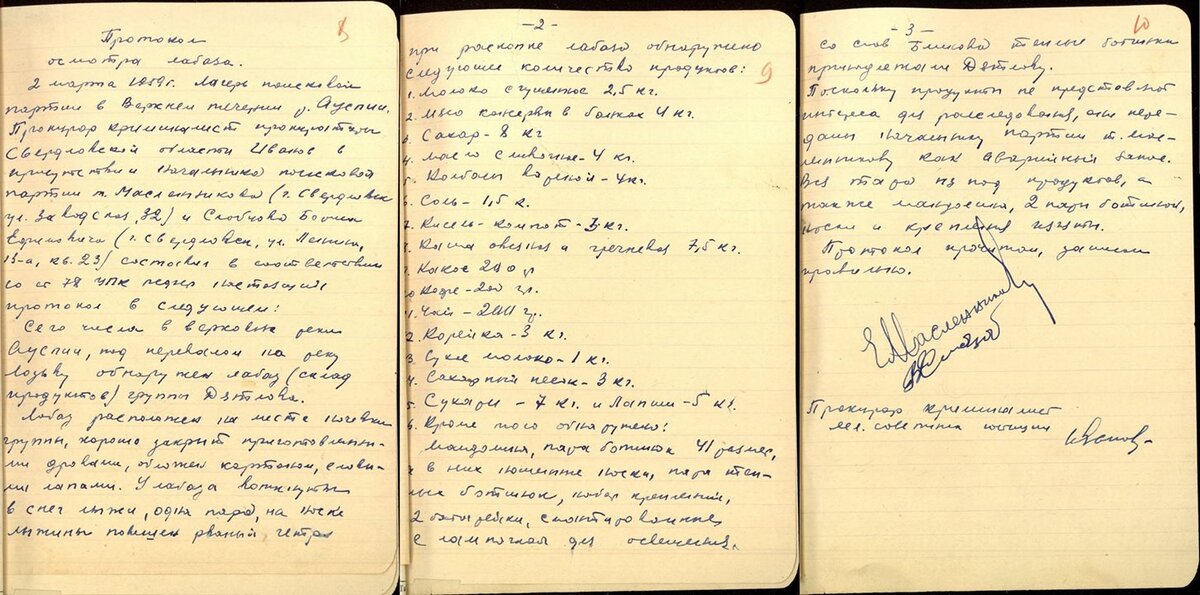 8
Протокол
осмотра лабаза.
2 марта 1959г. Лагерь поисковой
партии в Верхнем течении р. Ауспии.
Прокурор криминалист прокуратуры
Свердловской области Иванов в
присутствии начальника поисковой
партии т. Масленникова (г. Свердловск
ул. Заводская, 32) и Слобцова Бориса
Ефимовича (г. Свердловск, ул. Ленина,
13-а, кв. 23) составил в соответствии
со ст 78 УПК РСФСР настоящий
протокол в следующем:
Сего числа в верховьях реки
Ауспии, под перевалом на реку
Лозьву обнаружен лабаз (склад
продуктов) группы Дятлова.
Лабаз расположен на месте ночевки
группы, хорошо закрыт приготовленны-
ми дровами, обложен картоном, еловы-
ми лапами. У лабаза воткнуты
в снег лыжи, одна пара, на носке
лыжины повешен рваный гетр
-2-
9
при раскопке лабаза обнаружено
следующее количество продуктов:
1. Молоко сгущенное 2,5 кг.
2. Мясо консервы в банках 4 кг.
3. Сахар - 8 кг
4. Масло сливочное - 4 кг.
5. Колбасы вареной - 4 кг.
6. Соль - 1,5 к.
7. Кисель-компот - 3 кг.
8. Каша овсяная и гречневая 7,5 кг.
9. Какао 200 гр
10 Кофе - 200 гр.
11. Чай - 200 гр.
12. Корейка - 3 кг.
13. Сухое молоко - 1 кг.
14. Сахарный песок - 3 кг.
15. Сухари - 7 кг. и Лапши - 5 кг.
16. Кроме того обнаружено:
мандолина, пара ботинок 41 размер,
а в них ношенные носки, пара теп-
лых ботинок, набор креплений,
2 батарейки, смонтированные
с лампочкой для освещения.
-3-
10
со слов Бликова теплые ботинки
принадлежали Дятлову.
Поскольку продукты не представляют
интереса для расследования, они пере-
даны начальнику партии т. Мас-
ленникову как аварийный запас.
Вся тара из под продуктов, а
также мандолина, 2 пары ботинок,
носки и крепления изъяты.
Протокол прочитан, записан
правильно.
ЕМасленников
Прокурор криминалист
мл. советник юстиции
Иванов